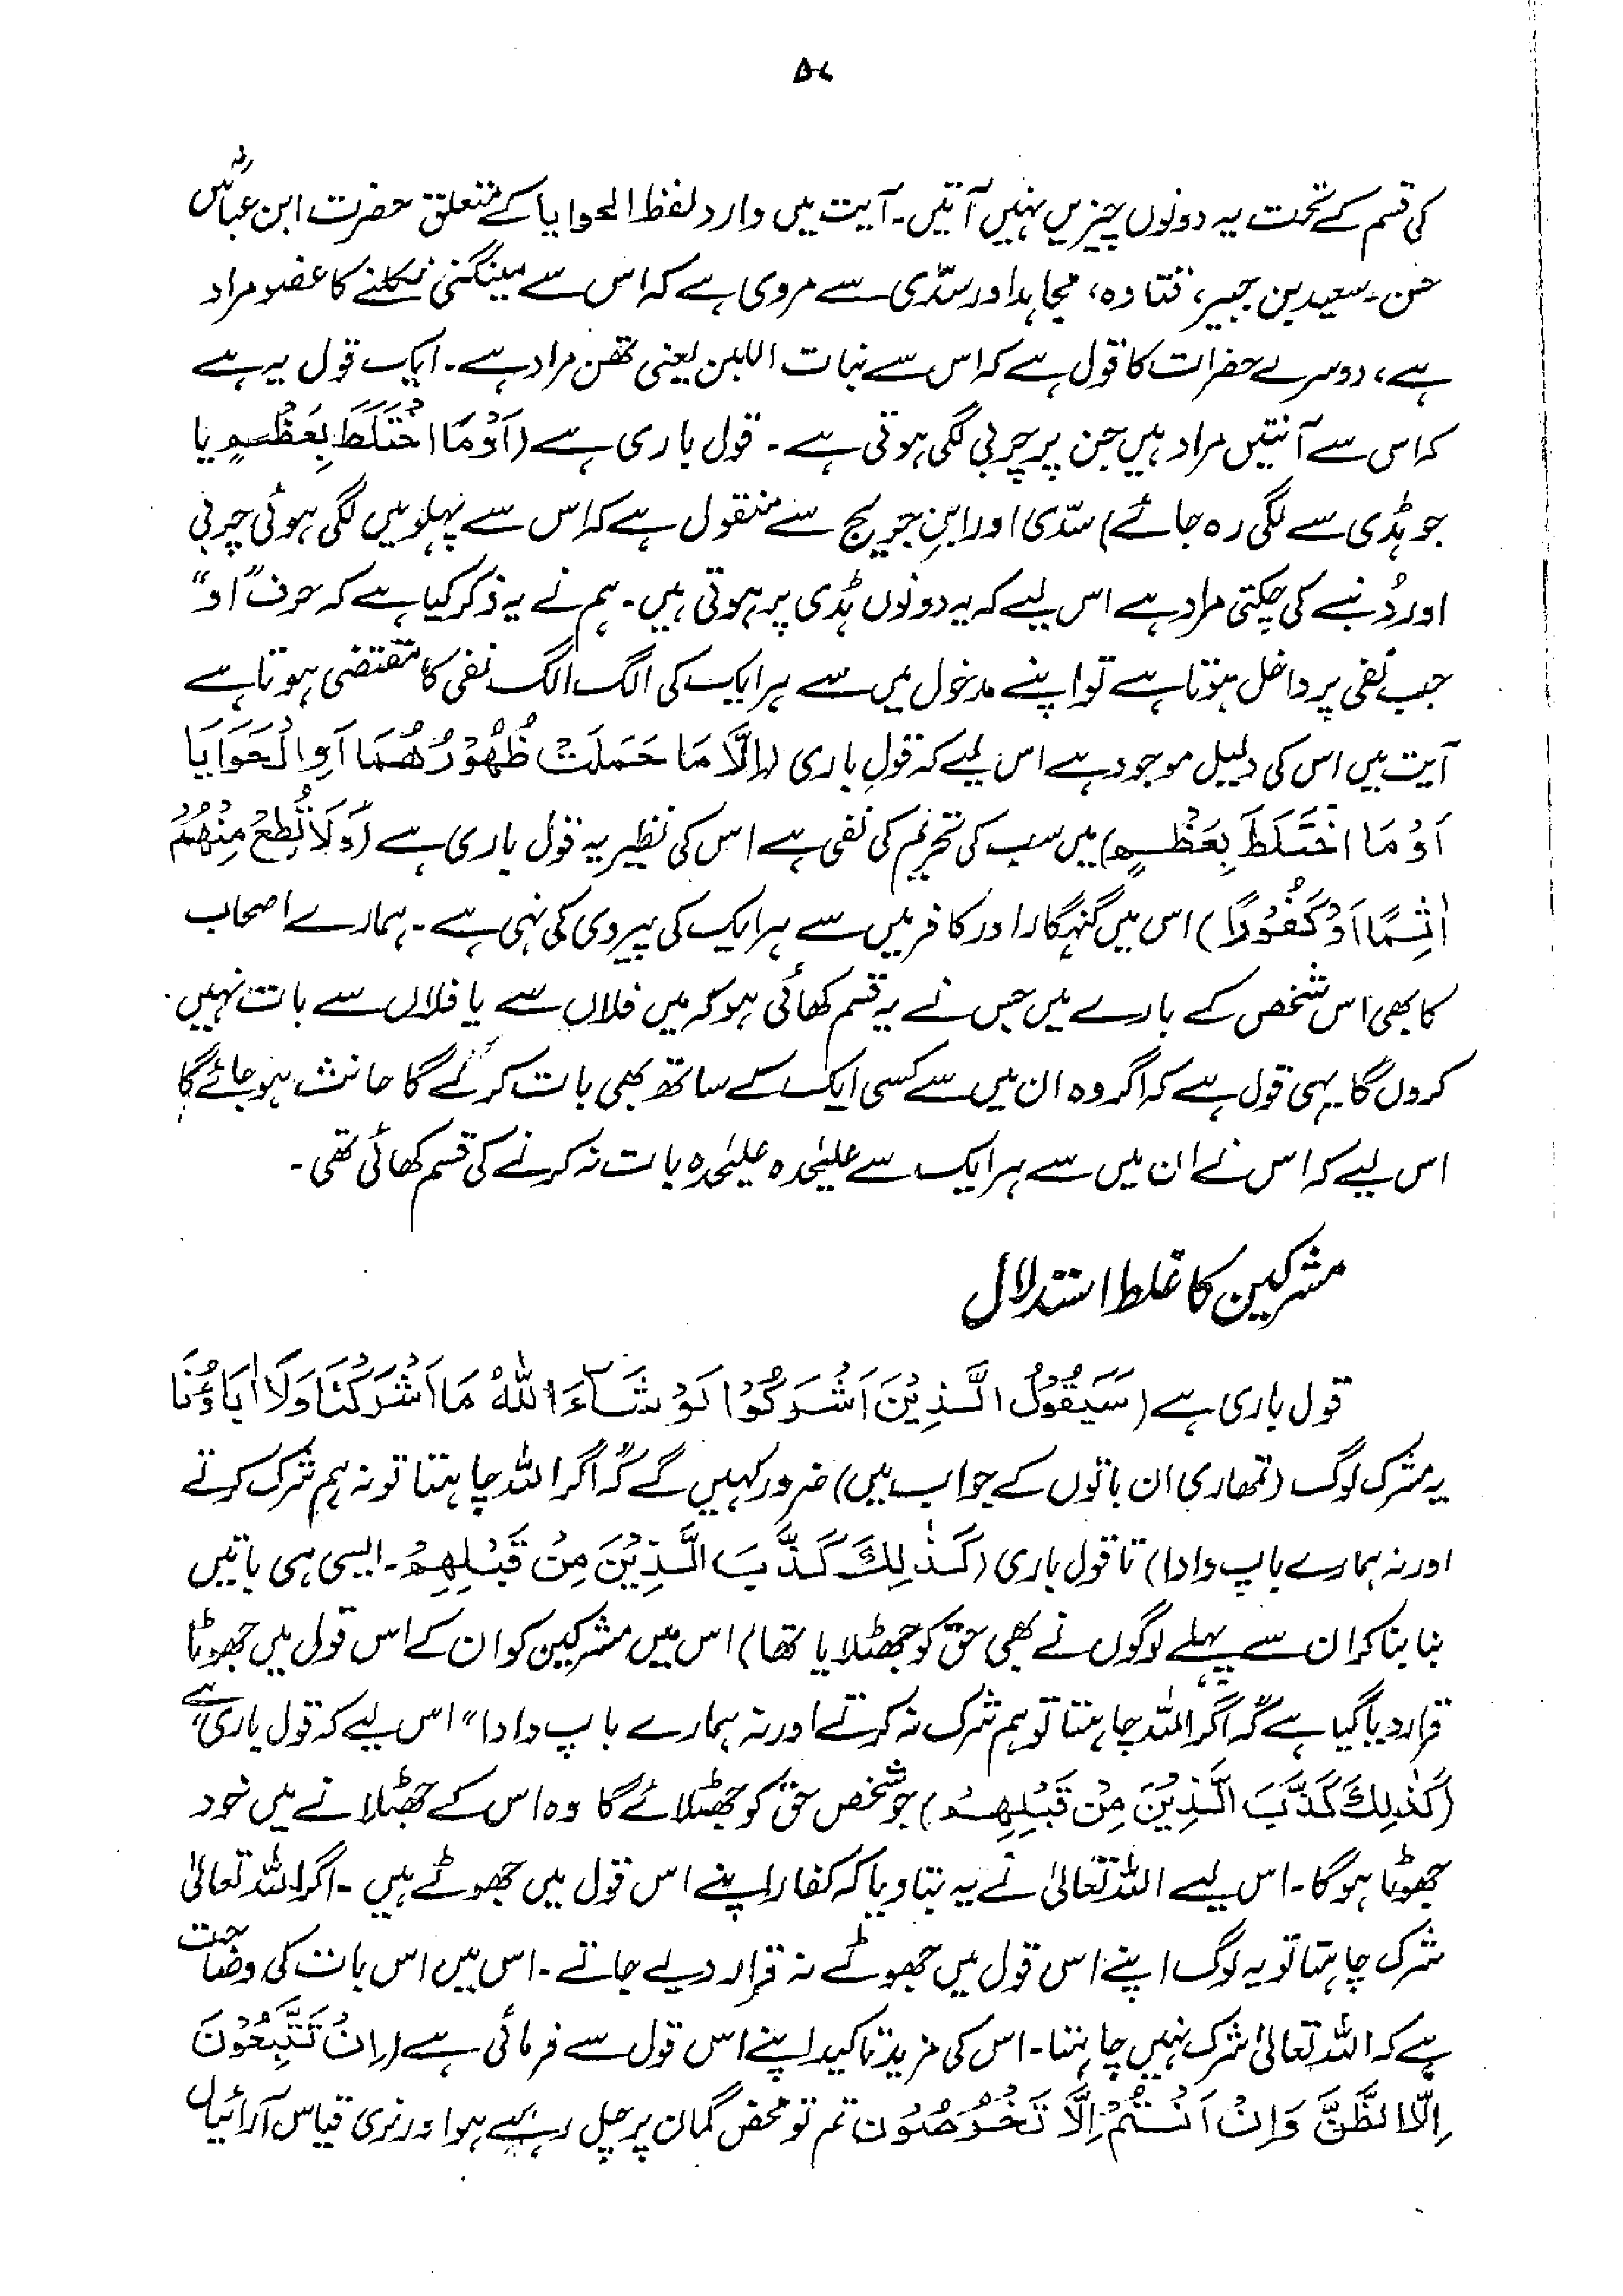 ۵۷
کی قسم کے تحت یہ دونوں چیزیں نہیں آتیں۔ آیت میں وارد لفظ الحوایا کے متعلق حضرت ابن عباسؓ
حسن۔ سعید بن جبیر، قتادہ، مجاہد اور سدّی سے مروی ہے کہ اس سے مینگنی نکلنے کا عضو مراد
ہے، دوسرے حضرات کا قول ہے کہ اس سے نبات اللبن یعنی تھن مراد ہے۔ ایک قول یہ ہے
کہ اس سے آنتیں مراد ہیں جن پر چربی لگی ہوتی ہے۔ قول باری ہے (اَوْ مَا اخْتَلَطَ بِعَظْمٍ یا
جو ہڈی سے لگی رہ جائے) سدّی اور ابنِ جریج سے منقول ہے کہ اس سے پہلو میں لگی ہوئی چربی
اور دُنبے کی چکتی مراد ہے اس لیے کہ یہ دونوں ہڈی پر ہوتی ہیں۔ ہم نے یہ ذکر کیا ہے کہ حرف "او"
جب نفی پر داخل ہوتا ہے تو اپنے مدخول میں سے ہر ایک کی الگ الگ نفی کا مقتضی ہوتا ہے
آیت میں اس کی دلیل موجود ہے اس لیے کہ قولِ باری (اِلَّا مَا حَمَلَتْ ظُهُوْرُهُمَا اَوِ الْحَوَايَا
اَوْ مَا اخْتَلَطَ بِعَظْمٍ) میں سب کی تحریم کی نفی ہے اس کی نظیر یہ قول باری ہے (وَلَا تُطِعْ مِنْهُمْ
اٰثِمًا اَوْ كَفُوْرًا) اس میں گنہگار اور کافر میں سے ہر ایک کی پیروی کی نہی ہے۔ ہمارے اصحاب
کا بھی اس شخص کے بارے میں جس نے یہ قسم کھائی ہو کہ میں فلاں سے یا فلاں سے بات نہیں
کروں گا یہی قول ہے کہ اگر وہ ان میں سے کسی ایک کے ساتھ بھی بات کرلے گا حانث ہو جائے گا
اس لیے کہ اس نے ان میں سے ہر ایک سے علیٰحدہ علیٰحدہ بات نہ کرنے کی قسم کھائی تھی۔
مشرکین کا غلط استدلال
قول باری ہے (سَيَقُوْلُ الَّذِيْنَ اَشْرَكُوْا لَوْ شَآءَ اللهُ مَا اَشْرَكْنَا وَلَا اٰبَاؤُنَا
یہ مشرک لوگ (تمھاری ان باتوں کے جواب میں) ضرور کہیں گے کہ "اگر اللہ چاہتا تو نہ ہم شرک کرتے
اور نہ ہمارے باپ دادا) تا قول باری (كَذٰلِكَ كَذَّبَ الَّذِيْنَ مِنْ قَبْلِهِمْ۔ ایسی ہی باتیں
بنا بنا کر ان سے پہلے لوگوں نے بھی حق کو جھٹلایا تھا) اس میں مشرکین کو ان کے اس قول میں جھوٹا
قرار دیا گیا ہے کہ "اگر اللہ چاہتا تو ہم شرک نہ کرتے اور نہ ہمارے باپ دادا" اس لیے کہ قول باری ہے
(كَذٰلِكَ كَذَّبَ الَّذِيْنَ مِنْ قَبْلِهِمْ) جو شخص حق کو جھٹلائے گا وہ اس کے جھٹلانے میں خود
جھوٹا ہوگا۔ اس لیے اللہ تعالیٰ نے یہ بتا دیا کہ کفار اپنے اس قول میں جھوٹے ہیں۔ اگر اللہ تعالیٰ
شرک چاہتا تو یہ لوگ اپنے اس قول میں جھوٹے نہ قرار دیے جاتے۔ اس میں اس بات کی وضاحت
ہے کہ اللہ تعالیٰ شرک نہیں چاہتا۔ اس کی مزید تاکید اپنے اس قول سے فرمائی ہے (اِنْ تَتَّبِعُوْنَ
اِلَّا الظَّنَّ وَاِنْ اَنْتُمْ اِلَّا تَخْرُصُوْن تم تو محض گمان پر چل رہے ہو اور نری قیاس آرائیاں